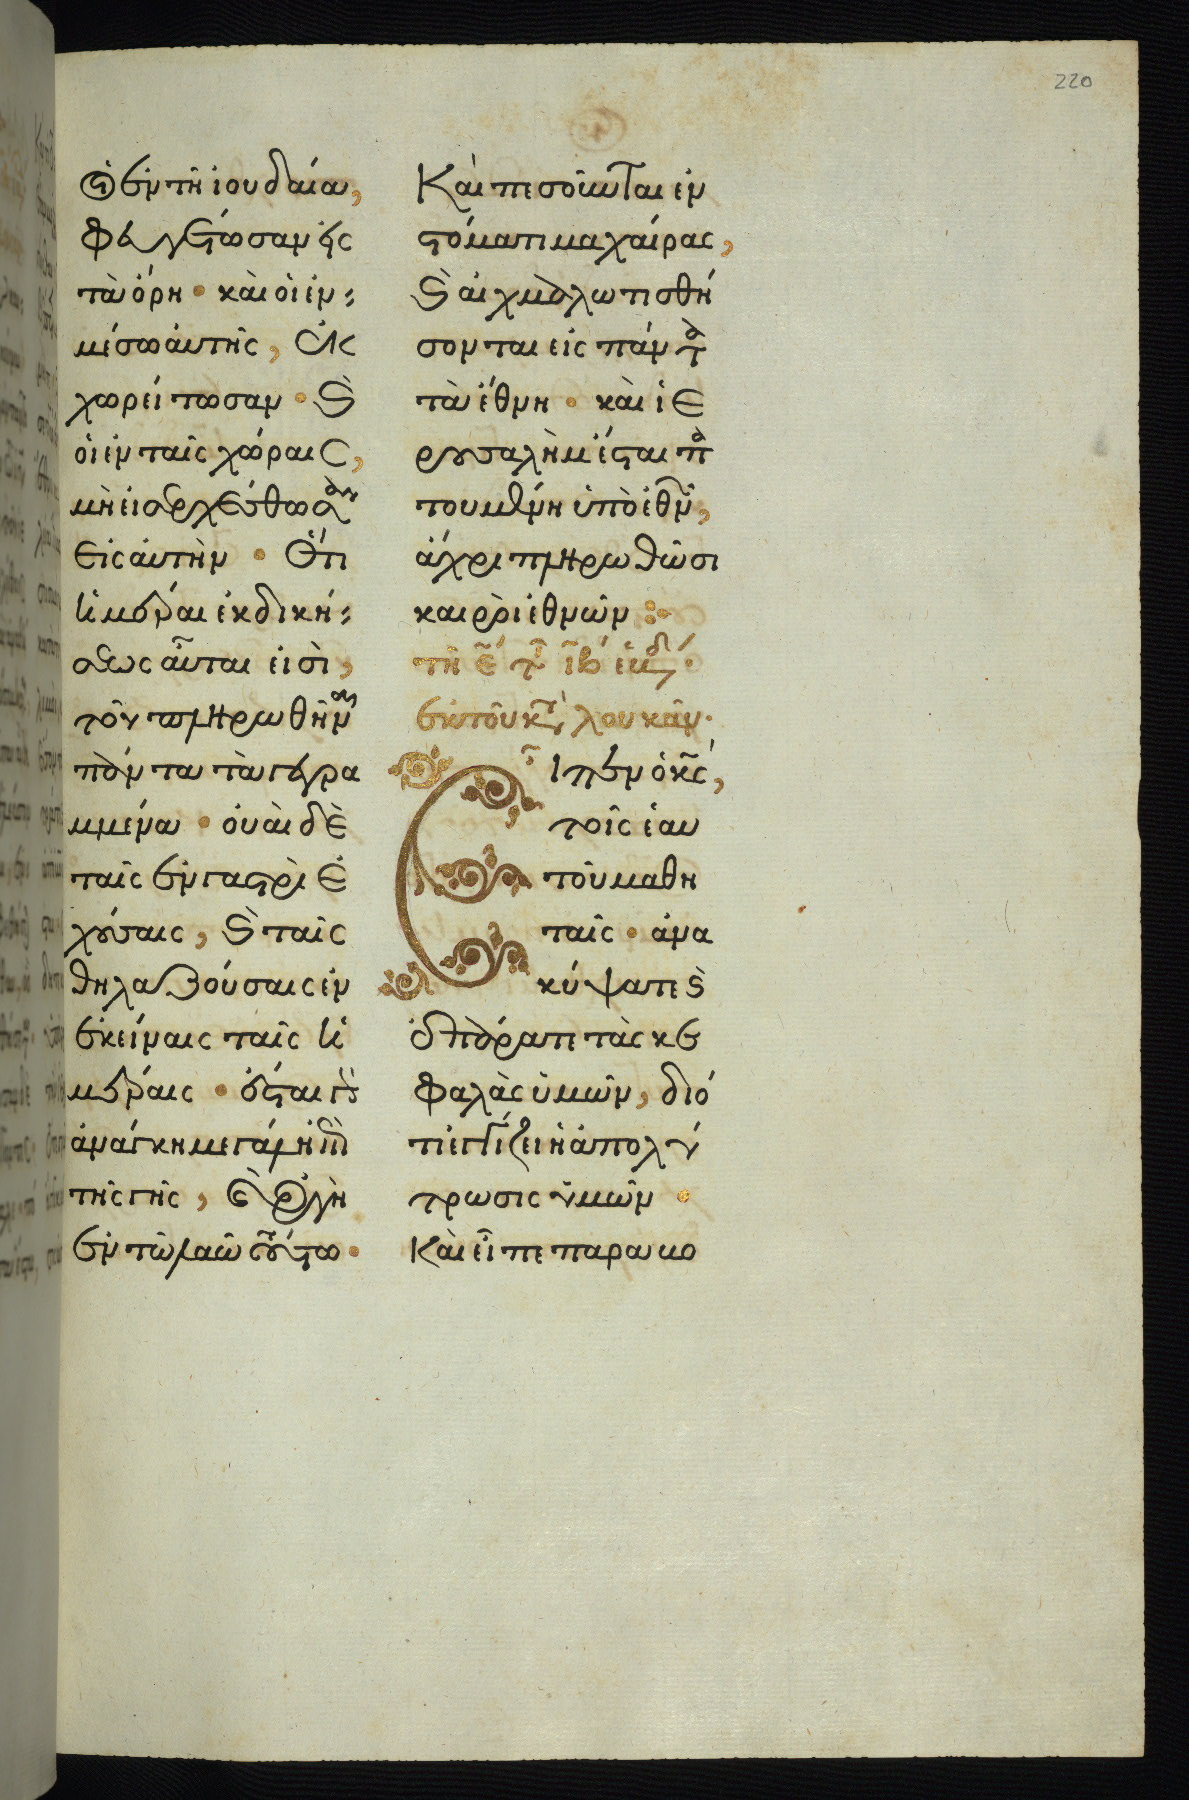 220
οἱ ἐν τῆ ἰουδαία,
φευγέτωσαν εἰς
τὰ ὄρη · καὶ οἱ ἐν
μέσω αὐτῆς, ἐκ
χωρείτωσαν · ϗ
οἱ ἐν ταῖς χώραις,
μὴ εἰσερχέσθωσαν
εἰς αὐτὴν · Ὅτι
ἡμέραι ἐκδικήσεως αὗται εἰσὶ,
τοῦ πληρωθῆναι
πάντα τὰ γεγρα
μμένα · οὐαὶ δὲ
ταῖς ἐν γαστρὶ ἐ
χούσαις, ϗ ταῖς
θηλαζούσαις ἐν
ἐκείναις ταῖς ἡ
μέραις · ἔσται γὰρ
ἀνάγκη μεγάλη ἐπὶ
τῆς γῆς, ϗ ὀργὴ
ἐν τῶ λαῶ τούτω ·
Καὶ πεσοῦνται ἐν
στόματι μαχαίρας,
ϗ αἰχμαλωτισθή
σονται εἰς πάντα
τὰ ἔθνη · καὶ ἱε
ρουσαλὴμ ἔσται πα
τουμένη ὑπὸ ἐθνῶν,
ἄχρι πληρωθῶσι
καιροὶ ἐθνῶν :·
τῆ ε τῆς ιβ ἑβδ ·
ἐκ τοῦ κτ λουκᾶν ·
Εἶπεν ὁ κς,
τοῖς ἑαυ
τοῦ μαθη
ταῖς · ἀνα
κύψατε ϗ
ἐπάρατε τὰς κε
φαλὰς ὑμῶν, διό
τι ἐγγίζει ἡ ἀπολύ
τρωσις ὑμῶν ·
Καὶ εἶπε παραβο